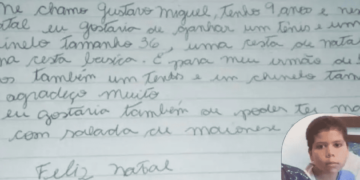 me chamo Gustavo Miguel, Tenho 9 anos e nes
atal eu gostaria de ganhar um tênis e um
inelo tamanho 36, uma cesta de nata
ma cesta basica. E para meu irmão de
os também um Tenis e um chinelo tam
agradeço muito
eu gostaria também de poder ter m
com salada de maionese
Feliz natal